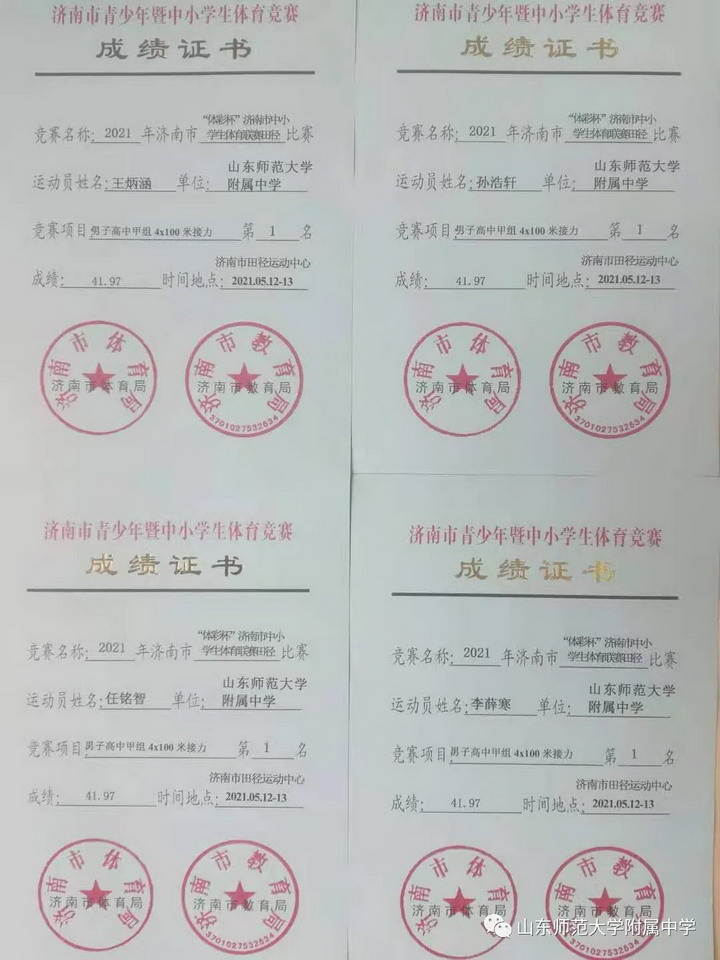 济南市青少年暨中小学生体育竞赛
成绩证书
“体彩杯”济南市中小
竞赛名称: 2021 年济南市 学生体育联赛田径 比赛
山东师范大学
运动员姓名: 王炳涵 单位: 附属中学
竞赛项目 男子高中甲组 4x100 米接力 第 1 名
济南市田径运动中心
成绩: 41.97 时间地点: 2021.05.12-13
济南市体育局
济南市体育局
济南市教育局
济南市教育局
3701027532634
济南市青少年暨中小学生体育竞赛
成绩证书
“体彩杯”济南市中小
竞赛名称: 2021 年济南市 学生体育联赛田径 比赛
山东师范大学
运动员姓名: 孙浩轩 单位: 附属中学
竞赛项目 男子高中甲组 4x100 米接力 第 1 名
济南市田径运动中心
成绩: 41.97 时间地点: 2021.05.12-13
济南市体育局
济南市体育局
济南市教育局
济南市教育局
3701027532634
济南市青少年暨中小学生体育竞赛
成绩证书
“体彩杯”济南市中小
竞赛名称: 2021 年济南市 学生体育联赛田径 比赛
山东师范大学
运动员姓名: 任铭智 单位: 附属中学
竞赛项目 男子高中甲组 4x100 米接力 第 1 名
济南市田径运动中心
成绩: 41.97 时间地点: 2021.05.12-13
济南市体育局
济南市体育局
济南市教育局
济南市教育局
3701027532634
济南市青少年暨中小学生体育竞赛
成绩证书
“体彩杯”济南市中小
竞赛名称: 2021 年济南市 学生体育联赛田径 比赛
山东师范大学
运动员姓名: 李薛寒 单位: 附属中学
竞赛项目 男子高中甲组 4x100 米接力 第 1 名
济南市田径运动中心
成绩: 41.97 时间地点: 2021.05.12-13
济南市体育局
济南市体育局
济南市教育局
济南市教育局
3701027532634
山东师范大学附属中学